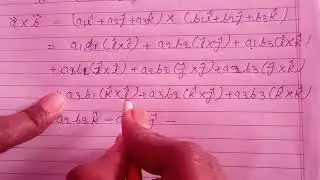 a⃗ x b⃗ = (a1i⃗ + a2j⃗ + a3k⃗) × (b1i⃗ + b2j⃗ + b3k⃗)
= a1b1(i⃗×i⃗) + a1b2(i⃗×j⃗) + a1b3(i⃗×k⃗)
+ a2b1(j⃗×i⃗) + a2b2(j⃗×j⃗) + a2b3(j⃗×k⃗)
+ a3b1(k⃗×i⃗) + a3b2(k⃗×j⃗) + a3b3(k⃗×k⃗)
a1b2k⃗ - j⃗ -